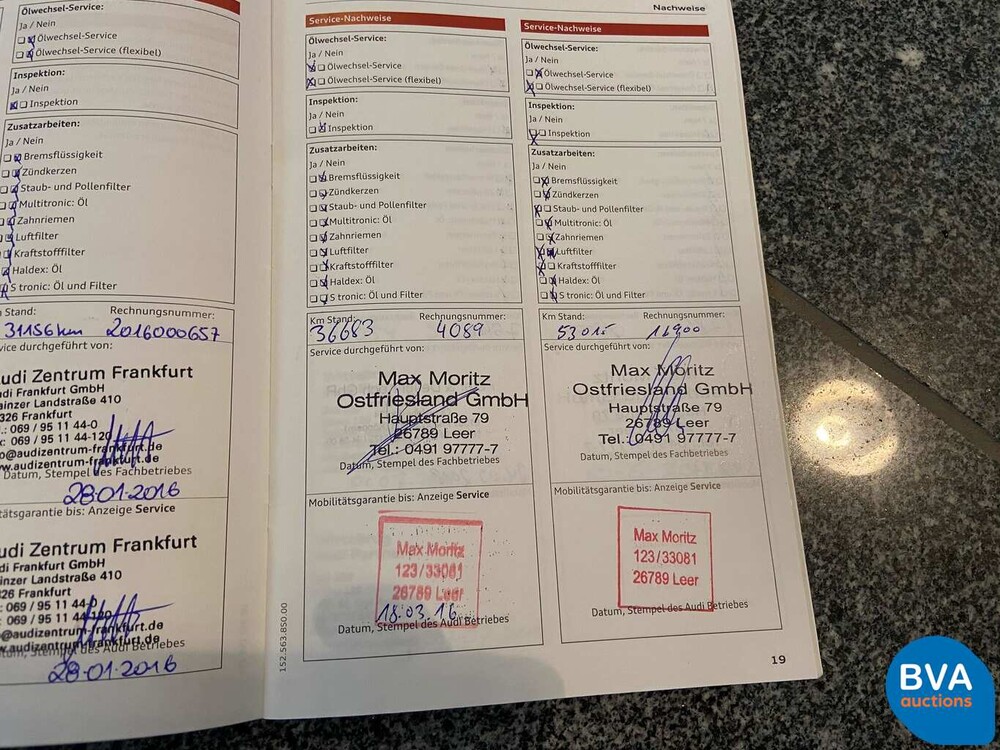 Nachweise
Ölwechsel-Service:
Ja / Nein
Ölwechsel-Service
Ölwechsel-Service (flexibel)
Inspektion:
Ja / Nein
Inspektion
Zusatzarbeiten:
Ja / Nein
Bremsflüssigkeit
Zündkerzen
Staub- und Pollenfilter
Multitronic: Öl
Zahnriemen
Luftfilter
Kraftstofffilter
Haldex: Öl
S tronic: Öl und Filter
Stand:
Rechnungsnummer:
31156km 2016000657
durchgeführt von:
Zentrum Frankfurt
Frankfurt GmbH
Landstraße 410
326 Frankfurt
069 / 95 11 44-0
069 / 95 11 44-120
Datum, Stempel des Fachbetriebes
28.01.2016
bis: Anzeige Service
Zentrum Frankfurt
Frankfurt GmbH
Landstraße 410
326 Frankfurt
069 / 95 11 44
des Audi Betriebes
28.01.2016
Service-Nachweise
Ölwechsel-Service:
Ja / Nein
Ölwechsel-Service
Ölwechsel-Service (flexibel)
Inspektion:
Ja / Nein
Inspektion
Zusatzarbeiten:
Ja / Nein
Bremsflüssigkeit
Zündkerzen
Staub- und Pollenfilter
Multitronic: Öl
Zahnriemen
Luftfilter
Kraftstofffilter
Haldex: Öl
S tronic: Öl und Filter
Km Stand:
Rechnungsnummer:
36683 4089
Service durchgeführt von:
Max Moritz
Ostfriesland GmbH
Hauptstraße 79
26789 Leer
Tel.: 0491 97777-7
Datum, Stempel des Fachbetriebes
Mobilitätsgarantie bis: Anzeige Service
Max Moritz
123/33081
26789 Leer
18.03.16
Datum, Stempel des Audi Betriebes
152.563.850.00
Service-Nachweise
Ölwechsel-Service:
Ja / Nein
Ölwechsel-Service
Ölwechsel-Service (flexibel)
Inspektion:
Ja / Nein
Inspektion
Zusatzarbeiten:
Ja / Nein
Bremsflüssigkeit
Zündkerzen
Staub- und Pollenfilter
Multitronic: Öl
Zahnriemen
Luftfilter
Kraftstofffilter
Haldex: Öl
S tronic: Öl und Filter
Km Stand:
Rechnungsnummer:
53015
Service durchgeführt von:
Max Moritz
Ostfriesland GmbH
Hauptstraße 79
26789 Leer
Tel.: 0491 97777-7
Datum, Stempel des Fachbetriebes
Mobilitätsgarantie bis: Anzeige Service
Max Moritz
123/33081
26789 Leer
Datum, Stempel des Audi Betriebes
19
BVA
auctions